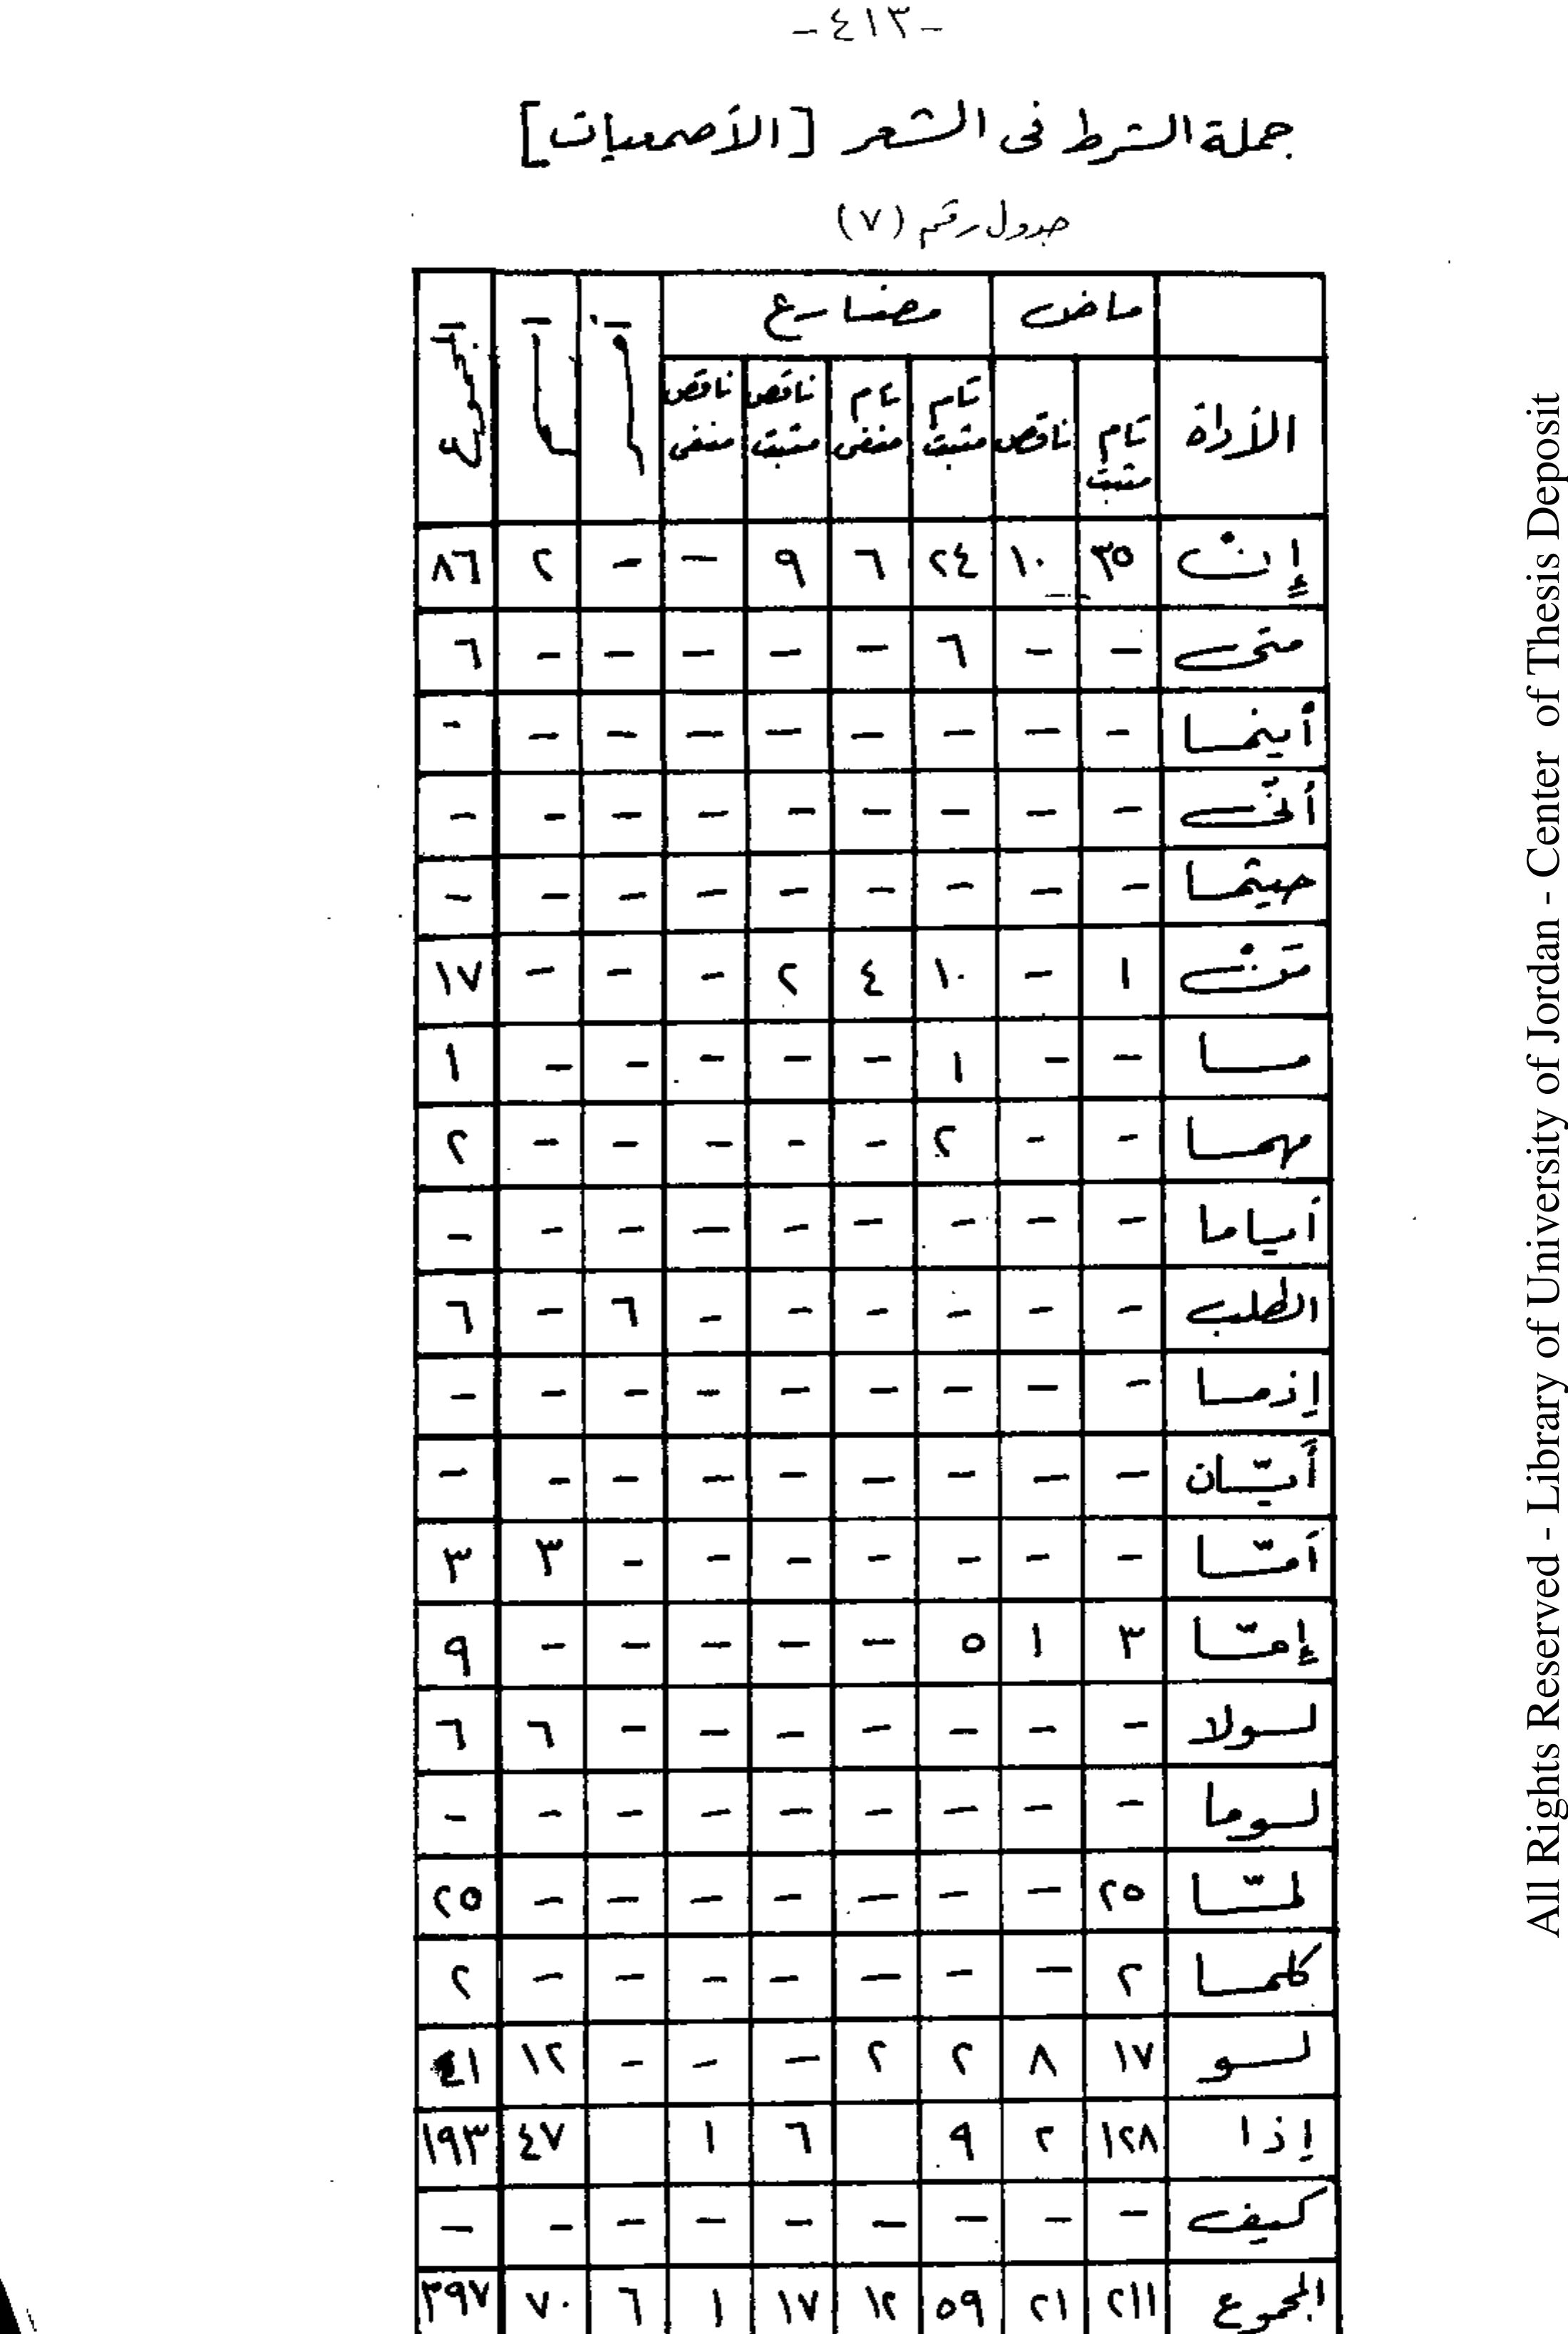 -٤١٣-
جملة الشرط في الشعر [الأصمعيات]
جدول رقم (٧)
ماضي مضارع أمر اسم المجموع
الأداة تام مثبت ناقص تام مثبت تام منفى ناقص مثبت ناقص منفى
إنْ ٣٥ ١٠ ٢٤ ٦ ٩ - - ٢ ٨٦
متى - - ٦ - - - - - ٦
أينما - - - - - - - - -
أنّى - - - - - - - - -
حيثما - - - - - - - - -
مَنْ ١ - ١٠ ٤ ٢ - - - ١٧
ما - - ١ - - - - - ١
مهما - - ٢ - - - - - ٢
أياما - - - - - - - - -
الطلب - - - - - - ٦ - ٦
إذما - - - - - - - - -
أيّان - - - - - - - - -
أمّا - - - - - - - ٣ ٣
إمّا ٣ ١ ٥ - - - - - ٩
لولا - - - - - - - ٦ ٦
لوما - - - - - - - - -
لمّا ٢٥ - - - - - - - ٢٥
كلما ٢ - - - - - - - ٢
لو ١٧ ٨ ٢ ٢ - - - ١٢ ٤١
إذا ١٢٨ ٢ ٩ ٦ ١ ٤٧ ١٩٣
كيف - - - - - - - - -
المجموع ٢١١ ٢١ ٥٩ ١٢ ١٧ ١ ٦ ٧٠ ٣٩٧
All Rights Reserved - Library of University of Jordan - Center of Thesis Deposit